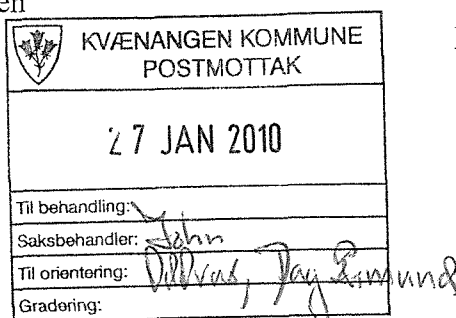 en
KVÆNANGEN KOMMUNE
POSTMOTTAK
27 JAN 2010
Til behandling:
Saksbehandler: John
Til orientering: Dag
Gradering: